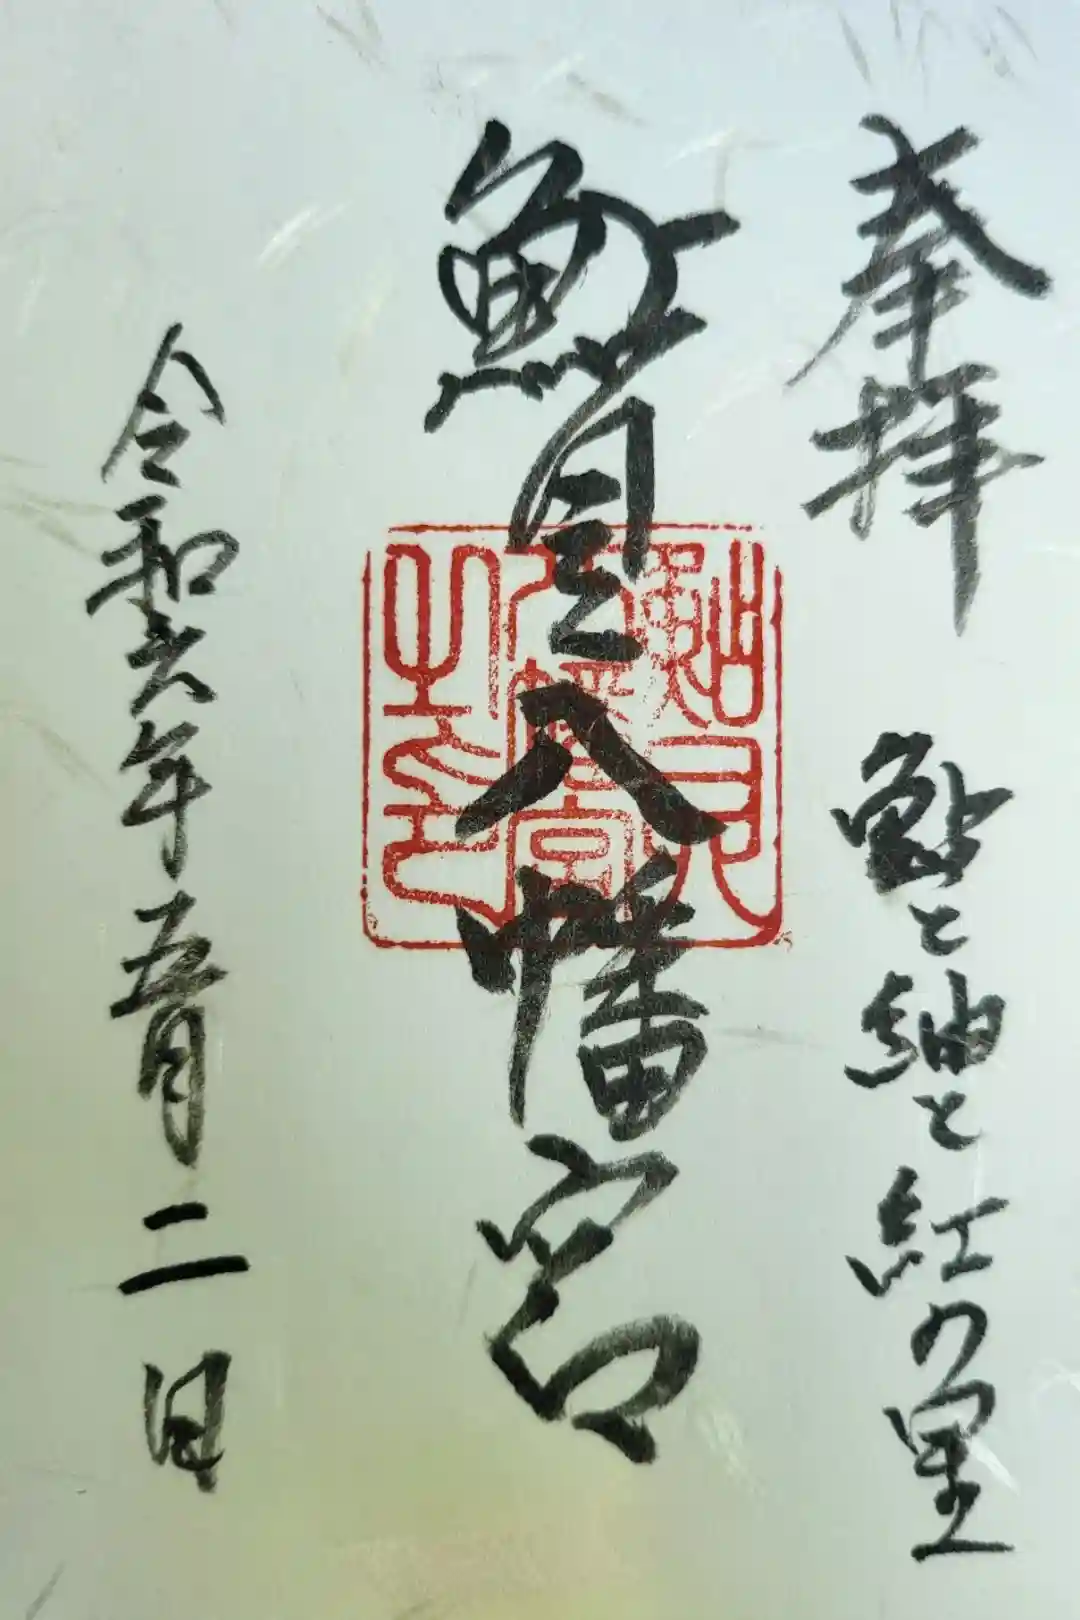 奉拝
鮎と紬と紅の里
鮎貝八幡宮
令和六年五月二日
鮎貝
八幡宮
之印